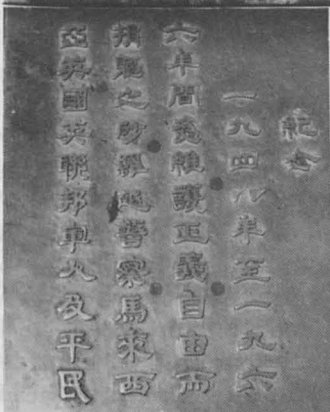 紀念
一九四八年至一九六
六年間為維護正義自由而
捐軀之砂羅越警察馬來西
亞英國英聯邦軍人及平民